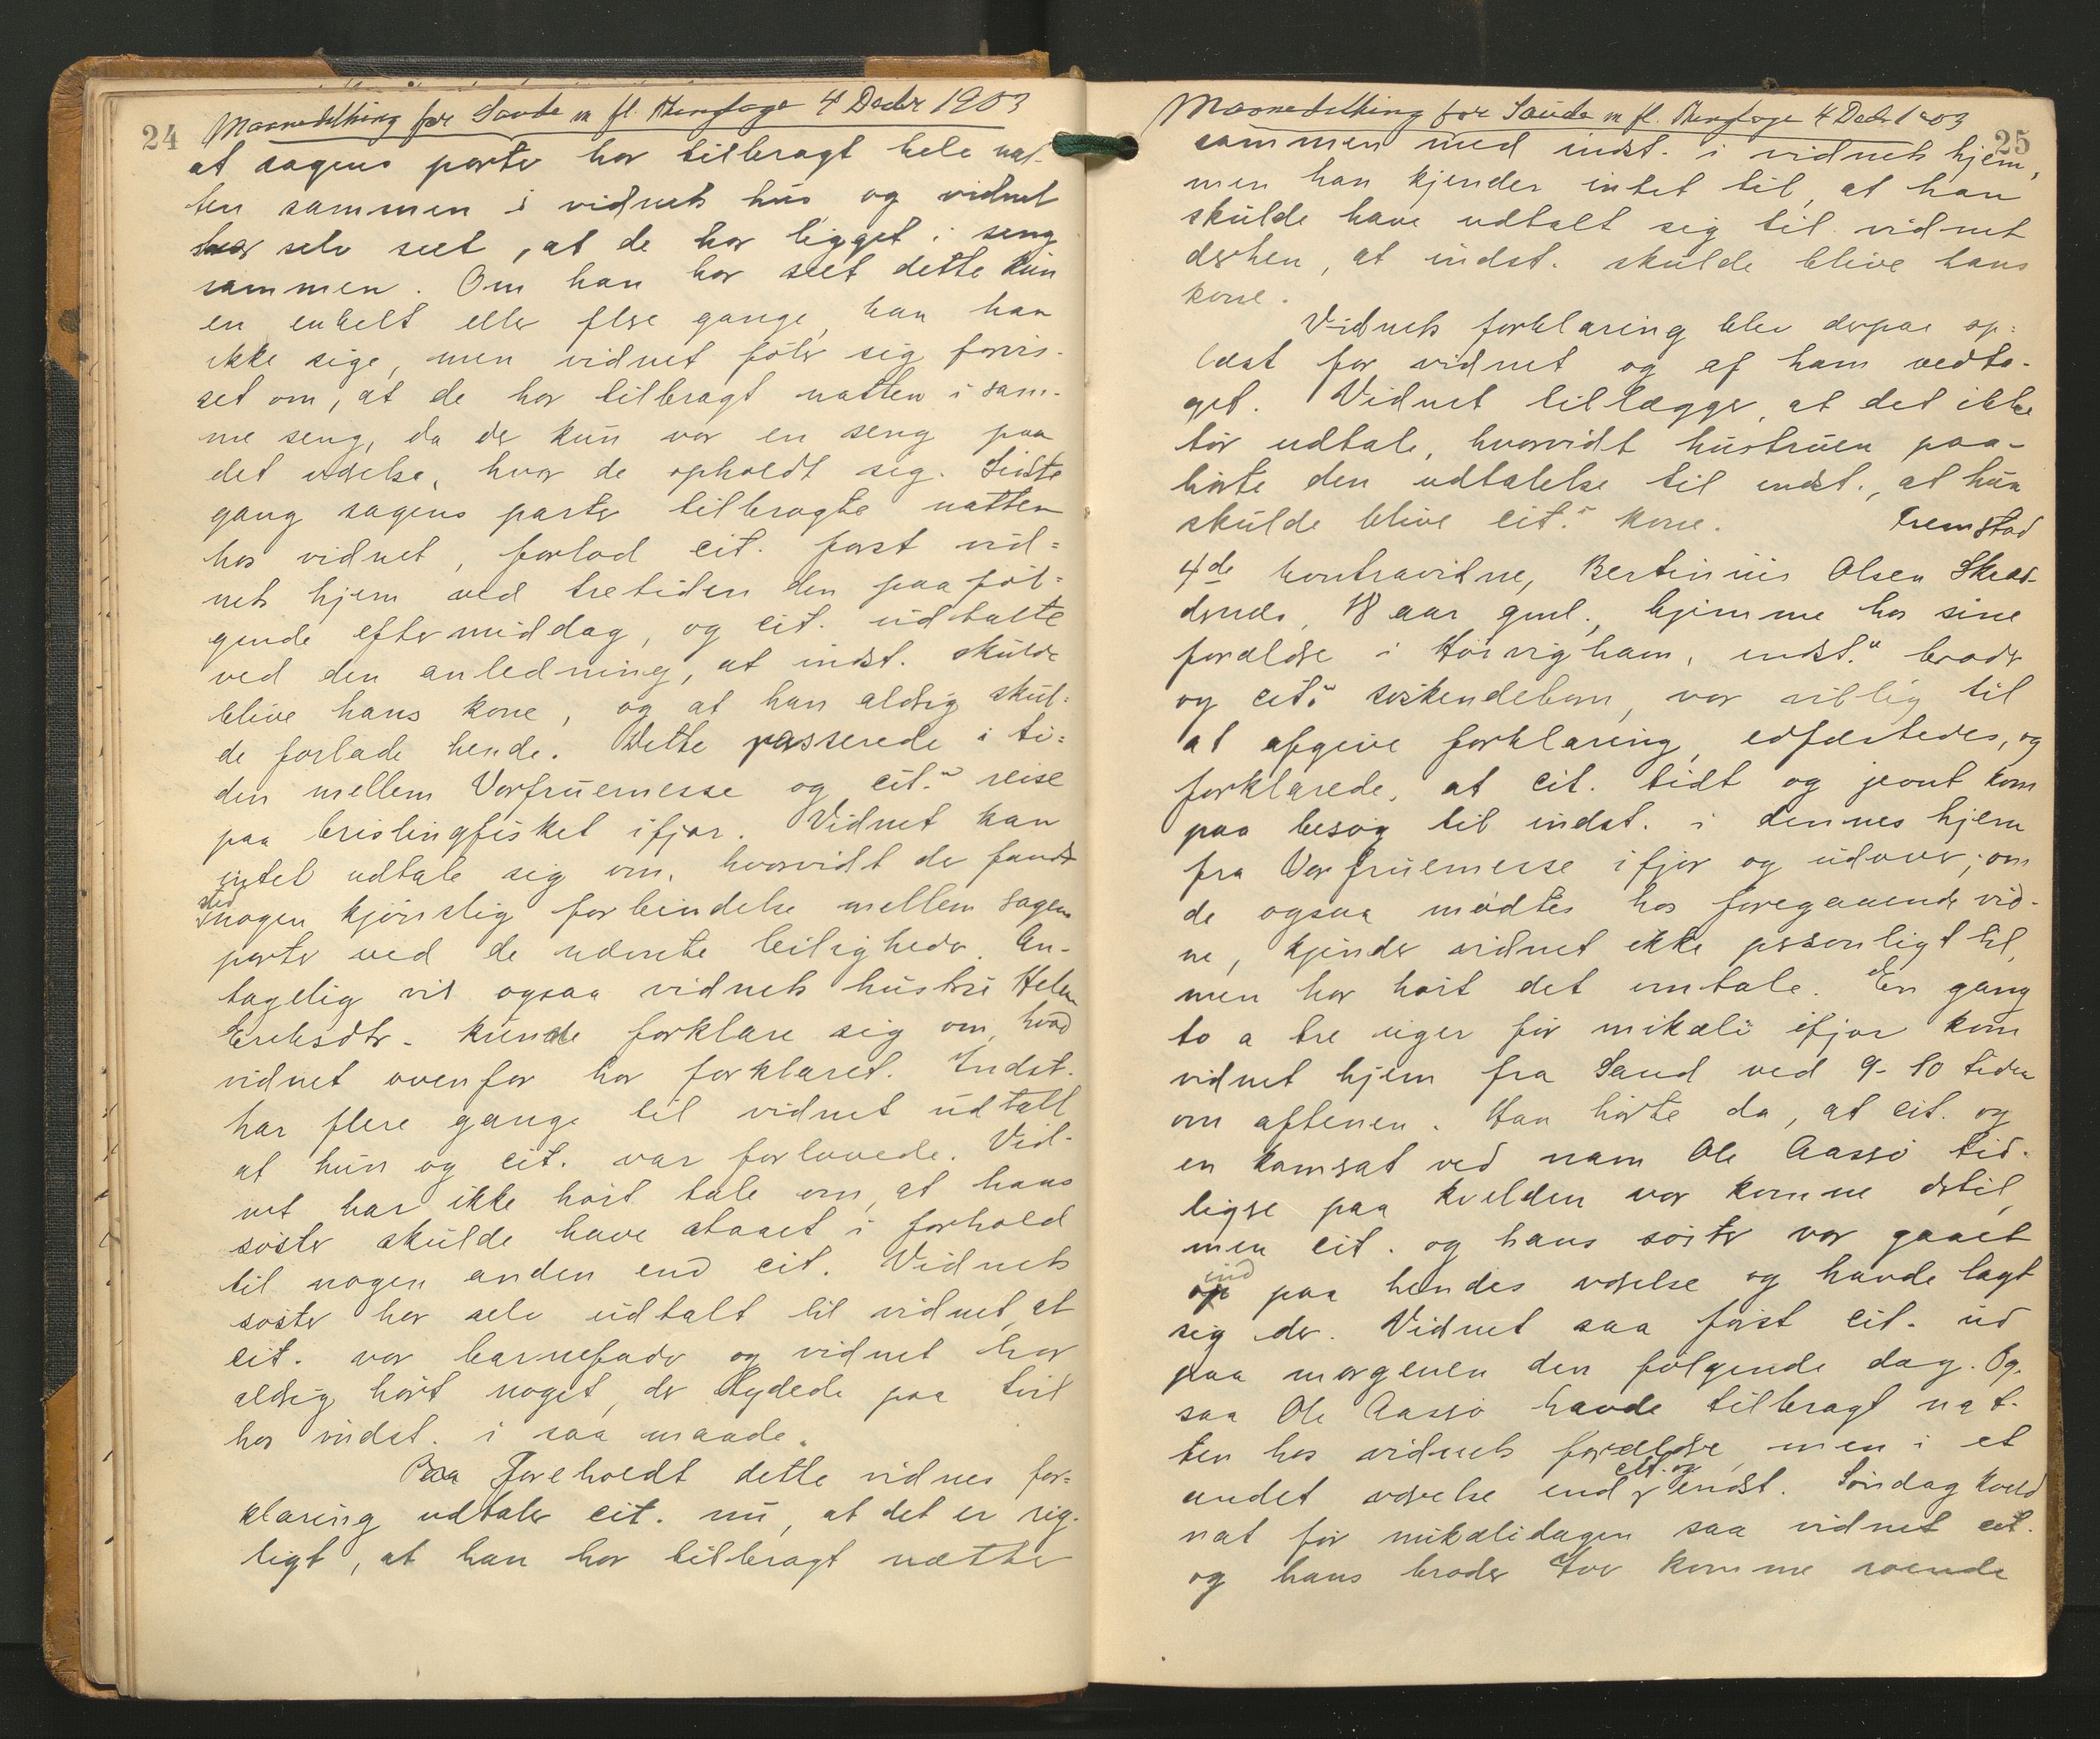 24
Maanedsthing for Saude m fl. thinglage 4 Decbr 1903
at sagens parter har tilbragt hele nat-
ten sammen i vidnets hus og vidnet
har selv seet, at de har ligget i seng
sammen. Om han har seet dette kun
en enkelt eller flere gange, kan han
ikke sige, men vidnet føler sig forvis-
set om, at de har tilbragt natten i sam-
me seng, da der kun var en seng paa
det værelse, hvor de opholdt sig. Sidste
gang sagens parter tilbragte natten
hos vidnet, forlod cit. først vid=
nets hjem ved tretiden den paa føl=
gende eftermiddag, og cit. udtalte
ved den anledning, at indst. skulde
blive hans kone, og at han aldrig skul=
de forlade hende. Dette passerede i ti=
den mellem Vorfruemesse og cit.s reise
paa brislingfisket ifjor. Vidnet kan
intet udtale sig om, hvorvidt der fandt
sted
nogen kjønslig forbindelse mellem sagens
parter ved de nævnte leiligheder. An-
tagelig vil ogsaa vidnets hustru Helene
Eriksdtr. kunde forklare sig om, hvad
vidnet ovenfor har forklaret. Indst.
har flere gange til vidnet udtalt
at hun og cit. var forlovede. Vid-
net har ikke hørt tale om, at hans
søster skulde have staaet i forhold
til nogen anden end cit. Vidnets
søster har selv udtalt til vidnet, at
cit. var barnefader og vidnet har
aldrig hørt noget, der tydede paa tvil
hos indst. i saa maade.
Paa Foreholdt dette vidnes for=
klaring udtaler cit. nu, at det er rig-
tigt, at han har tilbragt nætter
25
Maanedsthing for Saude m fl. thinglage 4 Decbr 1903
sammen med indst. i vidnets hjem,
men han kjender intet til, at han
skulde have udtalt sig til vidnet
derhen, at indst. skulde blive hans
kone.
Vidnets forklaring blev derpaa op=
læst for vidnet og af ham vedta-
get. Vidnet tillægger, at det ikke
tør udtale, hvorvidt hustruen paa-
hørte den udtalelse til indst., at hun
skulde blive cit.s kone. Fremstod
4de kontravidne, Bertinius Olsen Skred-
deruds, 18 aar gml., hjemme hos sine
forældre i Høivigham, indst.s broder
og cit.s søskendebarn, var villig til
at afgive forklaring, edfæstedes, og
forklarede, at cit. tidt og jevnt kom
paa besøg til indst. i dennes hjem
fra Vorfruemesse ifjor og udover; om
de ogsaa mødtes hos foregaaende vid-
ne, kjender vidnet ikke personligt til,
men har hørt det omtale. En gang
to a tre uger før mikæli ifjor kom
vidnet hjem fra Sand ved 9-10 tiden
om aftenen. Han hørte da, at cit. og
en kamerat ved navn Ole Aassø tid-
ligere paa kvelden var komne dertil,
men cit. og hans søster var gaaet
ind
op paa hendes værelse og havde lagt
sig der. Vidnet saa først cit. ud
paa morgenen den følgende dag. Og-
saa Ole Aassø havde tilbragt nat-
ten hos vidnets forældre, men i et
cit. og
andet værelse end indst. Søndag kveld
nat før mikælidagen saa vidnet cit.
og hans broder Ivar komme roende